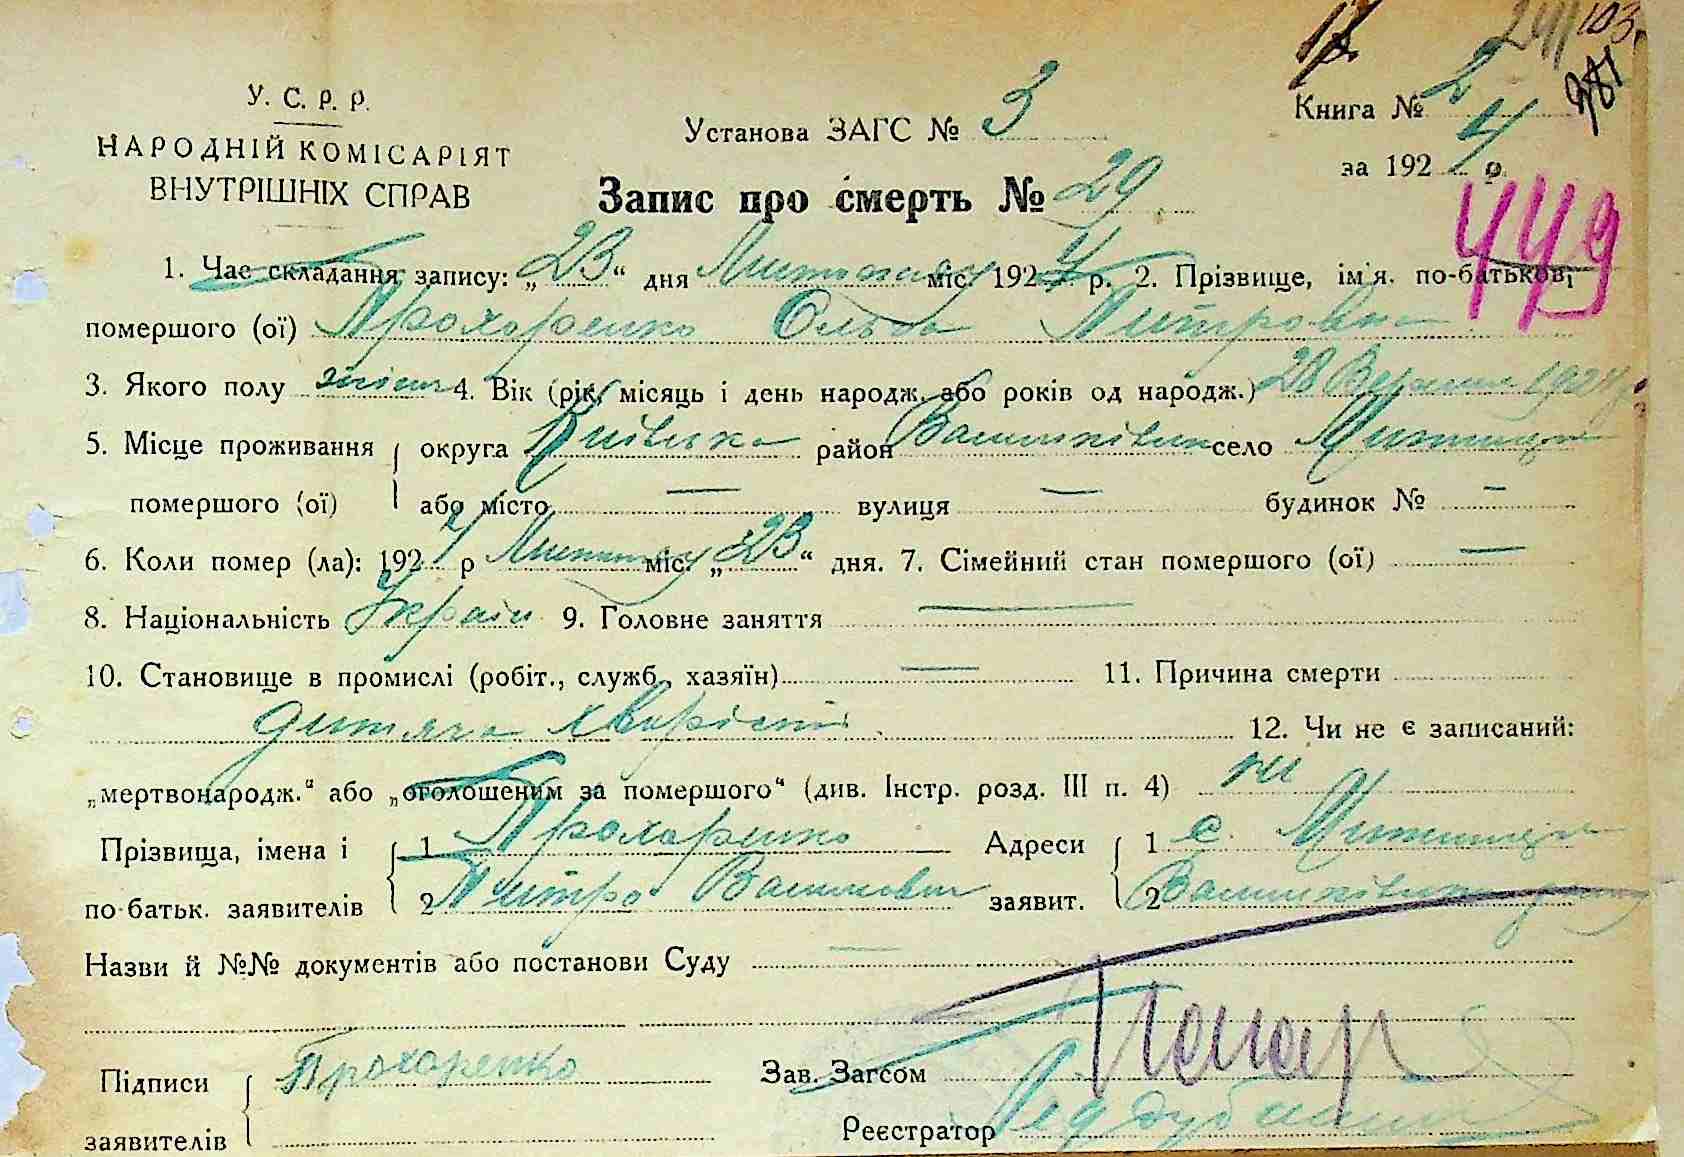 103
381
У. С. Р. Р.
НАРОДНІЙ КОМІСАРІЯТ
ВНУТРІШНІХ СПРАВ
Установа ЗАГС № 3
Книга № 2
за 1924 р.
Запис про смерть № 29
449
1. Час складання запису: „23“ дня Листопаду міс. 1924 р. 2. Прізвище, ім'я. по-батькові
помершого (ої) Прохоренко Ольга Питровна
3. Якого полу жіноч 4. Вік (рік, місяць і день народж. або років од народж.) 28 Вересня 1924 р
5. Місце проживання округа Київська район Васильківськ село Митниця
помершого (ої) або місто — вулиця — будинок № —
6. Коли помер (ла): 1924 р Листопаду міс. „23“ дня. 7. Сімейний стан помершого (ої) —
8. Національність Україн 9. Головне заняття —
10. Становище в промислі (робіт., служб., хазяїн) — 11. Причина смерти
дитяча хворість 12. Чи не є записаний:
„мертвонародж.“ або „оголошеним за помершого“ (див. Інстр. розд. III п. 4) ні
Прізвища, імена і 1 Прохоренко Адреси 1 с. Митниця
по-батьк. заявителів 2 Питро Васильович заявит. 2 Васильківськ
Назви й №№ документів або постанови Суду —
Підписи Прохоренко Зав. Загсом
заявителів Реєстратор